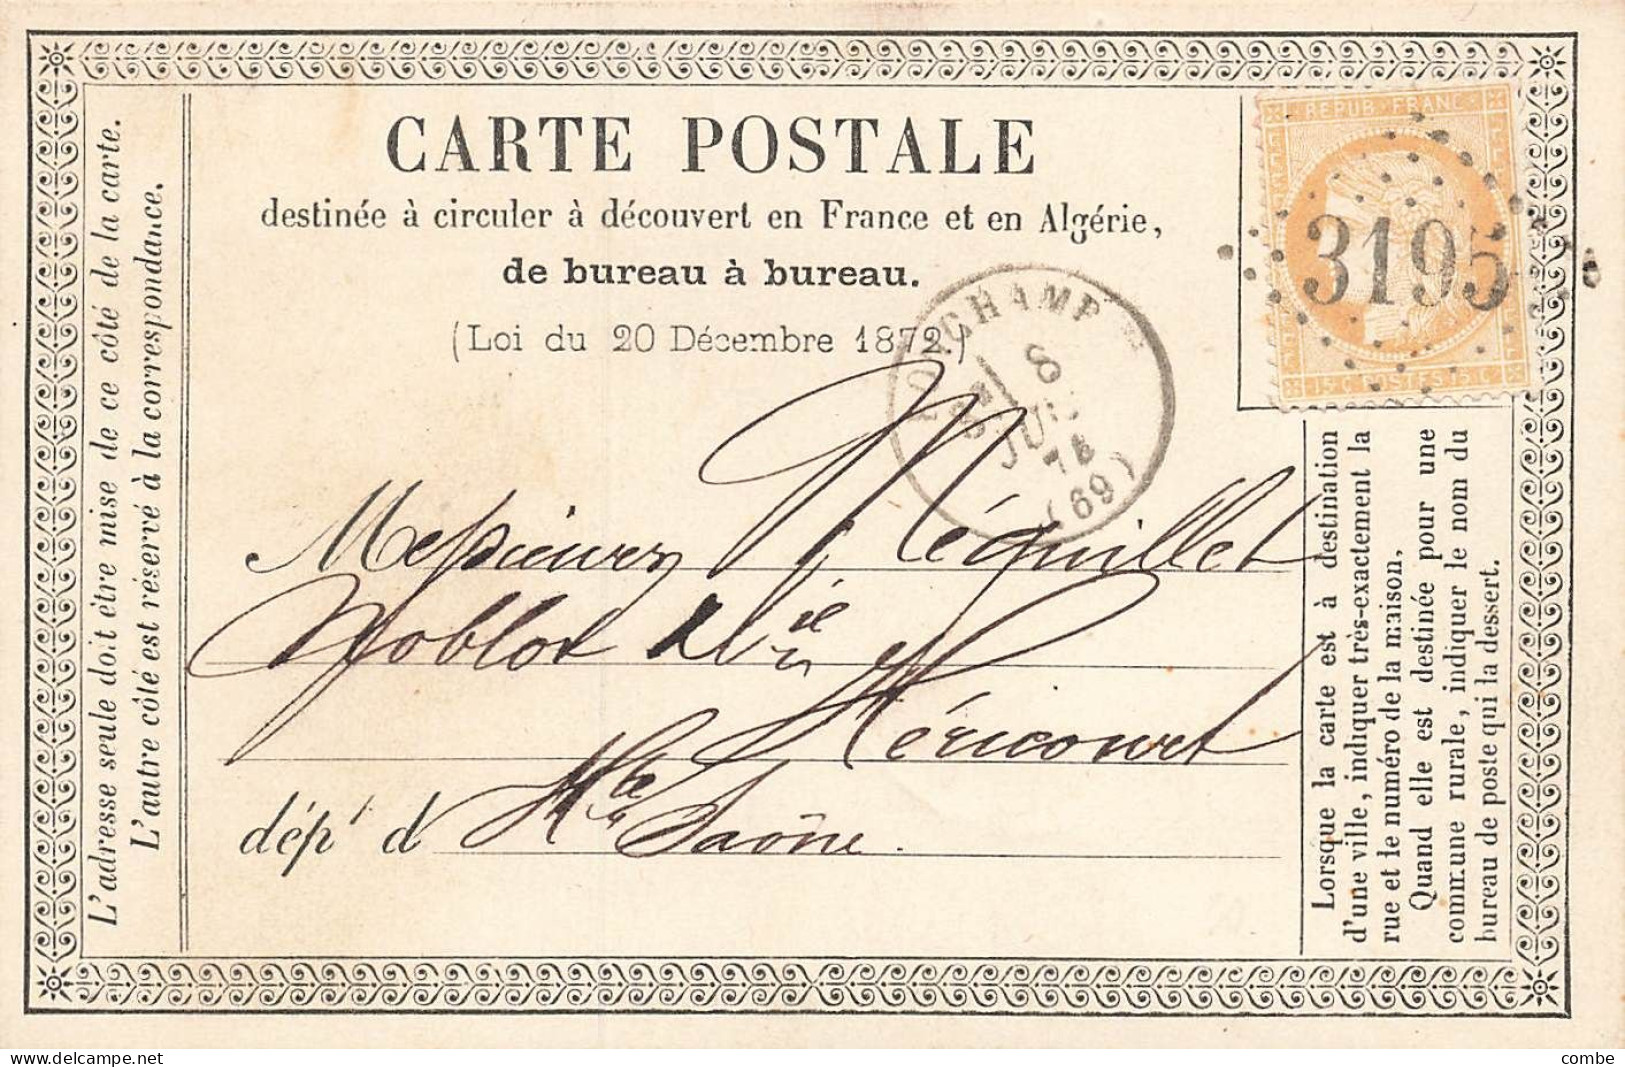 CARTE POSTALE
destinée à circuler à découvert en France et en Algérie,
de bureau à bureau.
(Loi du 20 Décembre 1872.)
REPUB FRANC
3195
15 C POSTES 15 C
RONCHAMP
8
JUIN
74
(69)
Messieurs Méquillet
Noblot & Cie
Héricourt
dépt d Hte Saône.
L'adresse seule doit être mise de ce côté de la carte.
L'autre côté est réservé à la correspondance.
Lorsque la carte est à destination
d'une ville, indiquer très-exactement la
rue et le numéro de la maison.
Quand elle est destinée pour une
commune rurale, indiquer le nom du
bureau de poste qui la dessert.
delcampe.net
combe